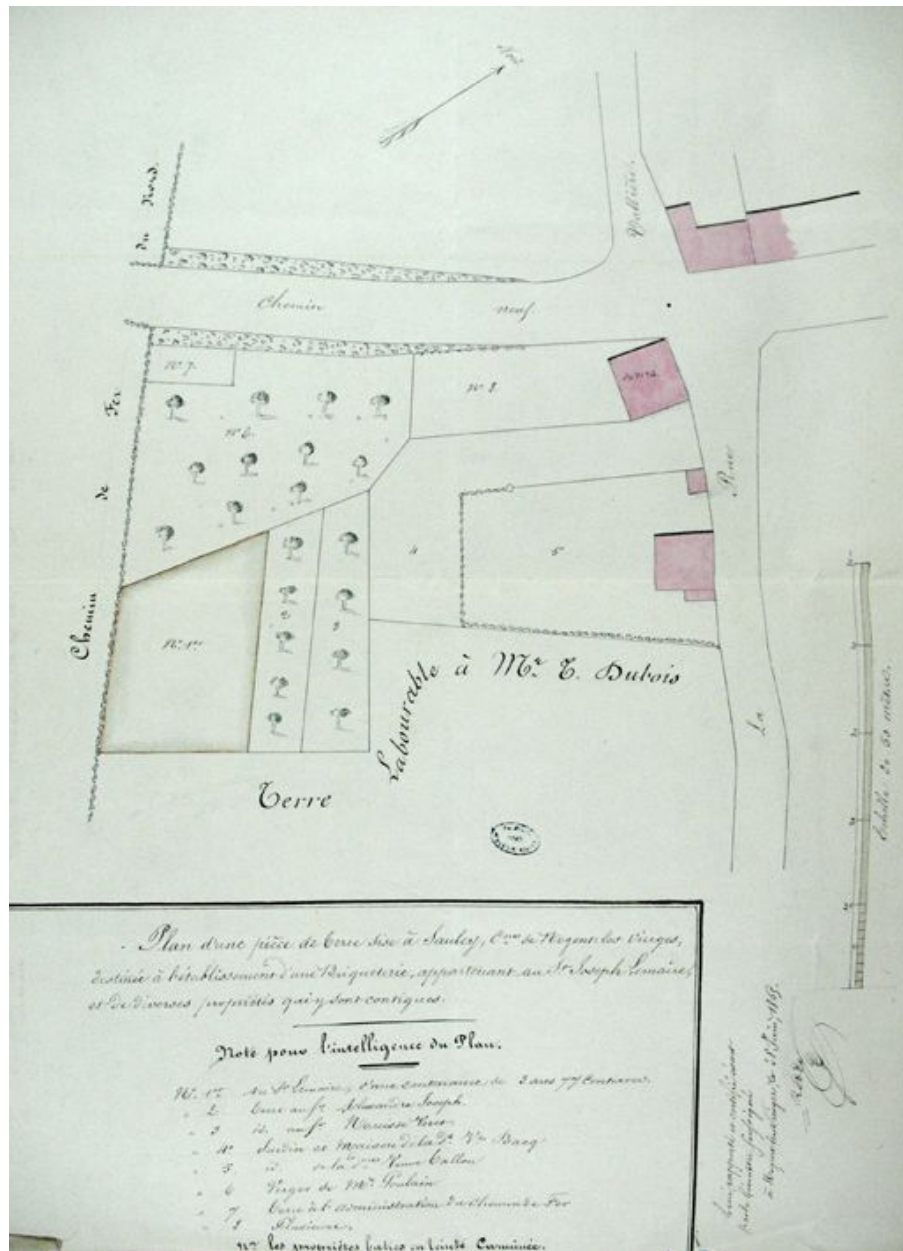 Nord
du Nord.
Vallière.
Chemin neuf
N° 7.
N° 8.
N° 6.
de Fer
Rue
4
5
Chemin
N° 1er
2
3
Labourable à Mr. T. Dubois
La
Terre
Echelle de 50 mètres.
Plan d'une pièce de terre sise à Saulcy, Cne de Nogent les Vierges,
destinée à l'établissement d'une Briqueterie, appartenant au Sr Joseph Lemaire,
et de diverses propriétés qui y sont contiguës.
Note pour l'intelligence du Plan.
N° 1er au Sr Lemaire, d'une contenance de 3 ares 77 Centiares.
2 Terre au Sr Alexandre Joseph.
3 id. au Sr
4 Jardin et Maison de la De Ve Bacq
5 id. de la Veuve Callou
6 Verger de Mr. Poulain
7 Terre de l'administration du Chemin de Fer
8
les propriétés baties en teinte Carminée.